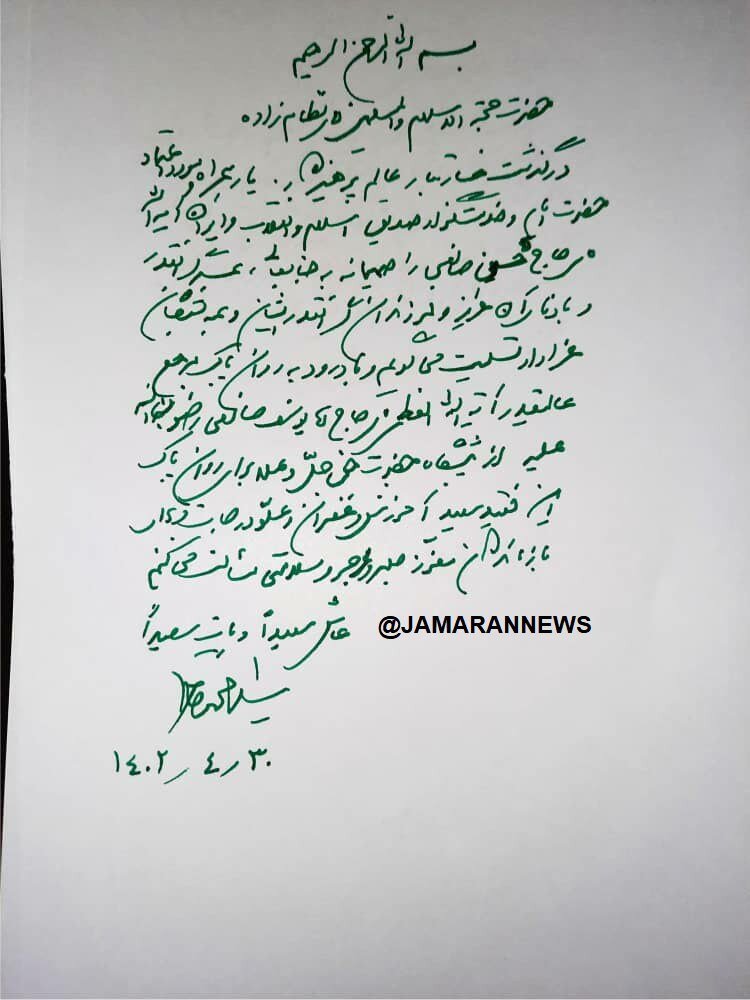 بسم الله الرحمن الرحیم
حضرت حجة الاسلام والمسلمین آقای نظام زاده
درگذشت خسارتبار عالم پرهیزگار، یار همراه و مورد اعتماد
حضرت امام و خدمتگزار صدیق اسلام و انقلاب و ایران آیة الله
آقای حاج شیخ حسن صانعی را صمیمانه به جنابعالی، همسر گرانقدر
و بازماندگان عزیز و فرزندان گرانقدرشان و همه بستگان
عزادار تسلیت می گویم و با درود به روان پاک مرجع
عالیقدر آیة الله العظمی حاج آقا یوسف صانعی رضوان الله
علیه از پیشگاه حضرت حق جلّ و علا برای روان پاک
این فقید سعید آمرزش و غفران و علوّ درجات و برای
بازماندگان معزّز صبر و اجر و سلامتی مسألت می کنم
عاش سعیداً و مات سعیداً
@JAMARANNEWS
سید محمد خاتمی
۱۴۰۲ ر ۴ ر ۳۰